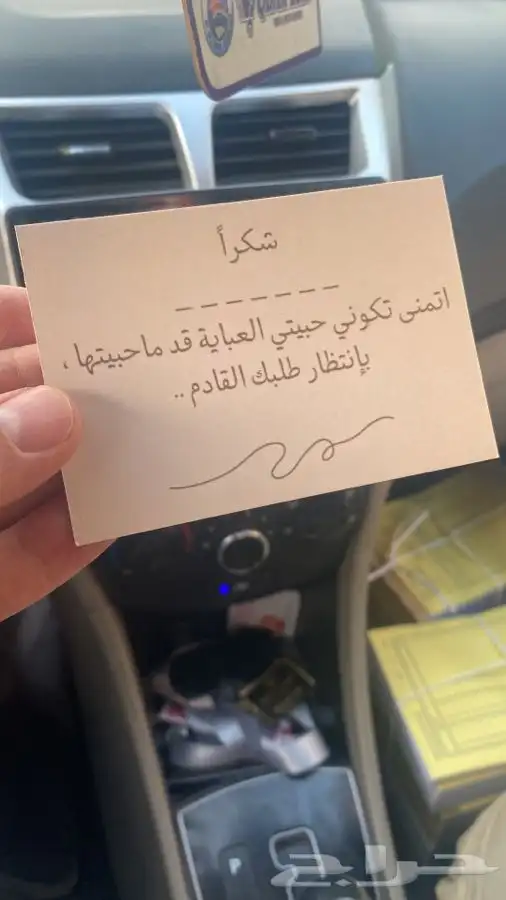 شكراً
_ _ _ _ _ _ _
اتمنى تكوني حبيتي العباية قد ماحبيتها ،
بإنتظار طلبك القادم ..
P
حراج